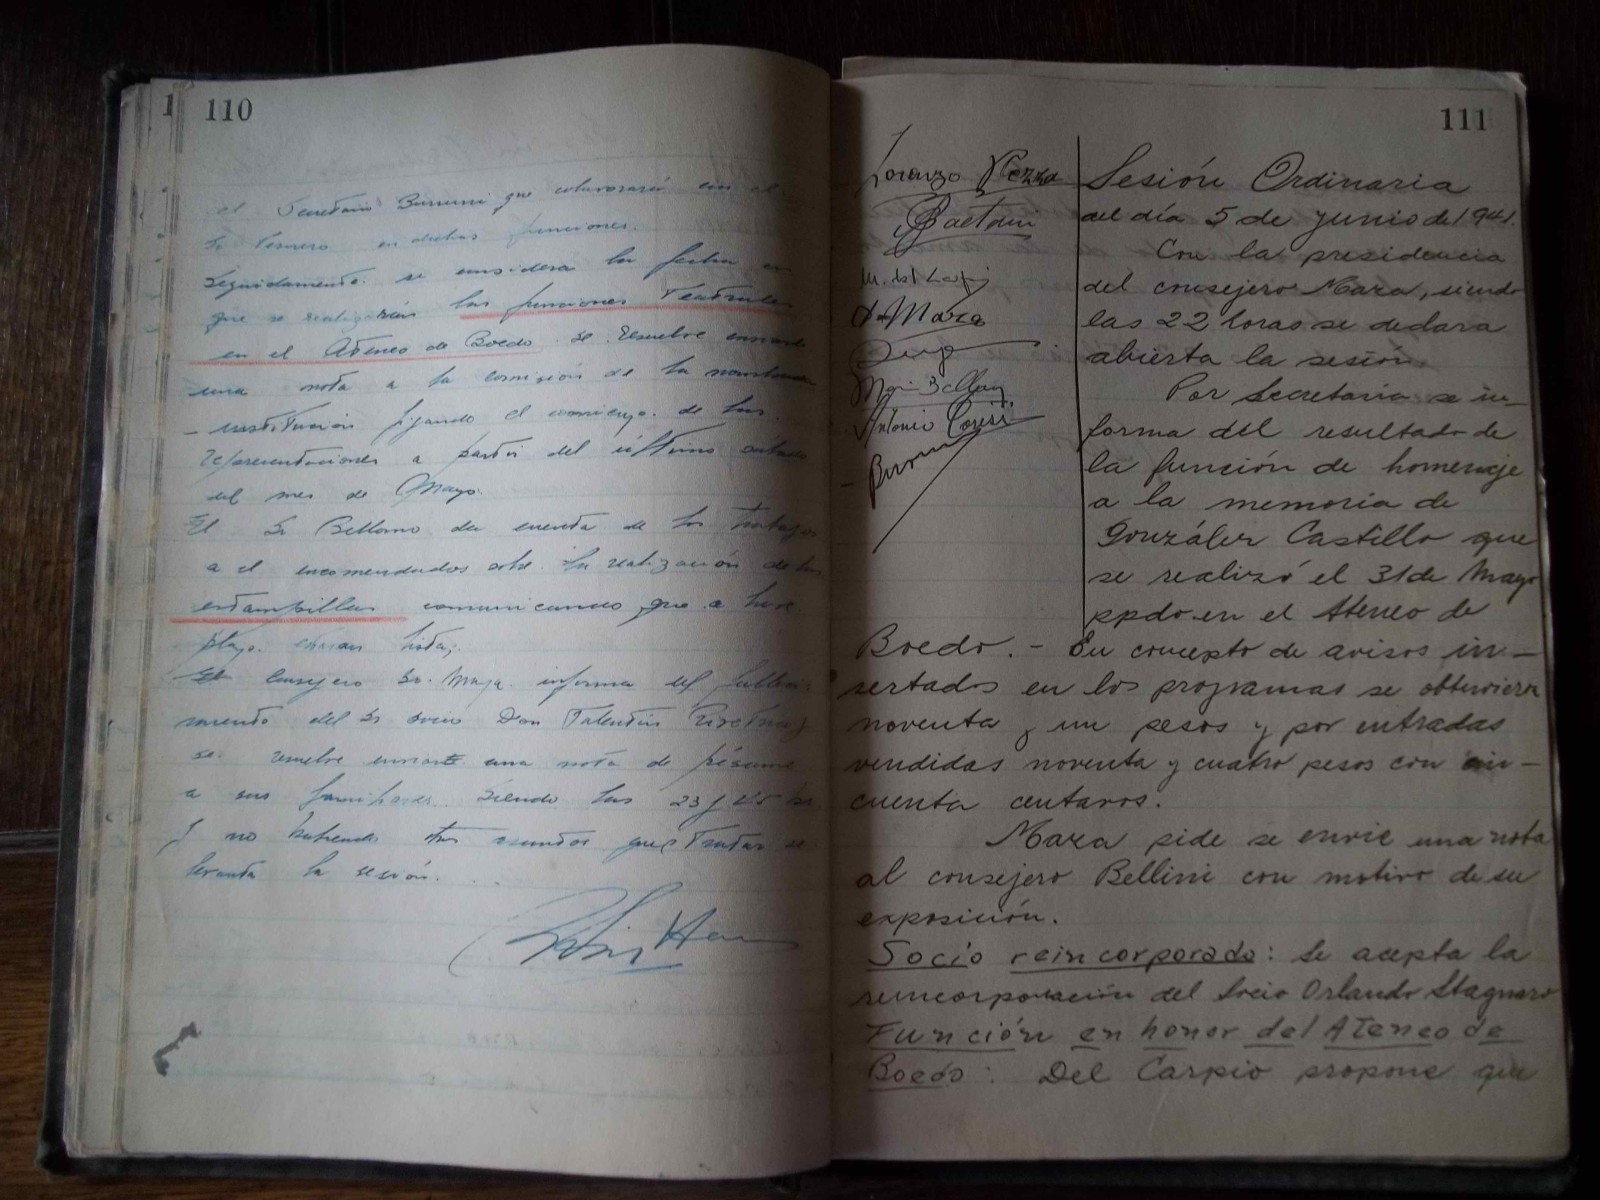 110
el Secretario que colaborarán con el
Sr Tesorero en dichas funciones.
Seguidamente se considera la fecha en
que se realizarán las funciones Teatrales
en el Ateneo de Boedo. se resuelve enviarle
una nota a la comisión de la nombrada
institución fijando el comienzo de las
representaciones a partir del último sábado
del mes de Mayo.
El Sr Bellomo da cuenta de los trabajos
a el encomendados sobre la realización de las
estampillas comunicando que a breve
plazo
El Consejero Sr. Maza informa del falleci-
miento del Sr socio Don
se resuelve enviarle una nota de pésame
a sus familiares. Siendo las 23 y
y no habiendo otros asuntos que tratar se
levanta la sesión.
111
Lorenzo
Gaetani
Maza
Antonio
Sesión Ordinaria
del día 5 de junio de 1941.
Con la presidencia
del consejero Maza, siendo
las 22 horas se declara
abierta la sesión
Por Secretaría se in-
forma del resultado de
la función de homenaje
a la memoria de
González Castillo que
se realizó el 31 de Mayo
ppdo. en el Ateneo de
Boedo. - En concepto de avisos in-
sertados en los programas se obtuvieron
noventa y un pesos y por entradas
vendidas noventa y cuatro pesos con cin-
cuenta centavos.
Maza pide se envíe una nota
al consejero Bellini con motivo de su
exposición.
Socio reincorporado: Se acepta la
reincorporación del Socio Orlando Stagnaro
Función en honor del Ateneo de
Boedo: Del Carpio propone que